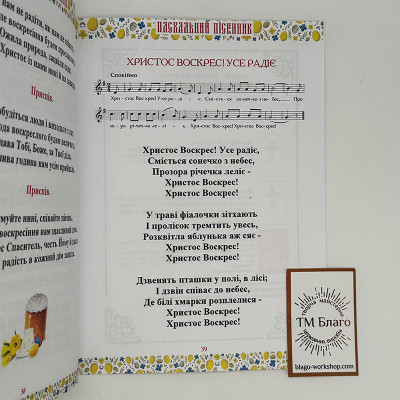 нам не радіть, як нам не
воскресіння будем
Ожила природа, засяли
Христос із нами нині і
Приспів.
будіться люди і виходьте з
года воскреслого будем
лава Тобі, Боже, за Твої
лива година нам усім
Приспів.
муйте нині, співайте пісень,
воскресіння нам писаний
с Спаситель, честь Йому і
радість в кожний дім
38
ПАСХАЛЬНИЙ ПІСЕННИК
ХРИСТОС ВОСКРЕС! УСЕ РАДІЄ
Спокійно
Хри - стос Вос-крес! Усе ра - ді - є, Смі-єть-ся со-неч-ко з не-бес, Про
зо - ра річеч-ка ле-ліє - Хри-стос Вос-крес! Хри-стос Вос-крес!
Христос Воскрес! Усе радіє,
Сміється сонечко з небес,
Прозора річечка леліє -
Христос Воскрес!
Христос Воскрес!
У траві фіалочки зітхають
І пролісок тремтить увесь,
Розквітла яблунька аж сяє -
Христос Воскрес!
Христос Воскрес!
Дзвенять пташки у полі, в лісі;
І дзвін співає до небес,
Де білі хмарки розплелися -
Христос Воскрес!
Христос Воскрес!
39
творча майстерня
ТМ Благо
blago-workshop.com